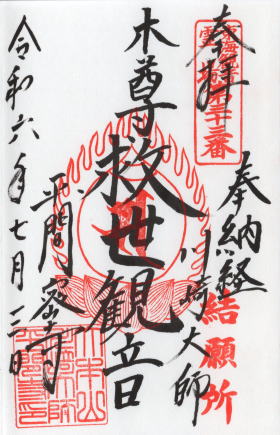 奉拝
第三十三番
奉納経
結願所
川崎大師
本尊救世観音
平間密寺
令和六年七月三日